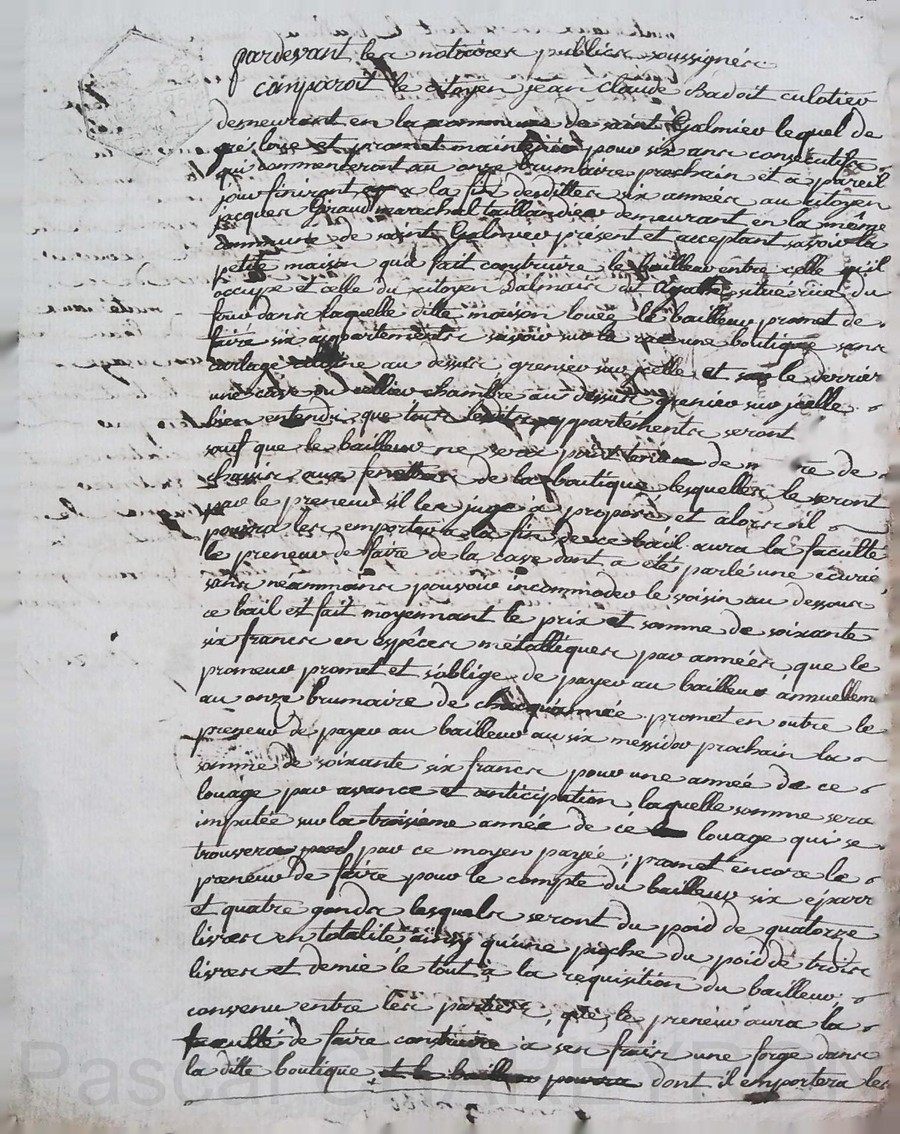 pardevant les notaires publics soussignés
comparoit le citoyen jean Claude Badoit culotier
demeurant en la commune de saint Galmier lequel de
gré loue et promet maintenir pour six ans consecutifs
qui commenceront au onze brumaire prochain et a pareil
jour finiront a la fin desdittes six années au citoyen
jacques Giraud marechal taillandier demeurant en la même
commune de saint Galmier présent et acceptant savoir la
petite maison qua fait construire le bailleur entre celle qu'il
occupe et celle du citoyen Dalmais dit située rue du
four dans laquelle ditte maison louée le bailleur promet de
faire six appartements savoir sur la rue une boutique sans
carlage au dessus grenier sur jcelle et sur le derrier
une cave ou cellier chambre au dessus grenier sur jcelle
bien entendu que tous lesdits appartéments seront
sauf que le bailleur ne sera point de de
chassis aux fenettres de la boutique lesquelles le seront
par le preneur sil les juge à proposé et alors il
pourra les emporter a la fin de ce bail aura la faculté
le preneur de faire de la cave dont a été parlé une ecurie
sans néammoins pouvoir incommoder le voisin au dessous
ce bail est fait moyennant le prix et somme de soixante
six francs en espêces métalliques par années que le
preneur promet et s'oblige de payer au bailleur annuellem
au onze brumaire de chacque année promet en outre le
preneur de payer au bailleur au six messidor prochain la
somme de soixante six francs pour une année de ce
louage par avance et anticipation laquelle somme sera
imputée sur la troisième année de cé louage qui se
trouvera par ce moyen payée ; promet encore le
preneur de faire pour le compte du bailleur six épars
et quatre gonds lesquels seront du poid de quatorze
livres en totalité ainsy qu'une pioche du poid de trois
livres et demie le tout à la requisition du bailleur
convenu entre les parties que le preneur aura la
faculté de faire construire à ses frais une forge dans
la ditte boutique et le bailleur pourra dont il emportera les
Pascal CHALEYRON